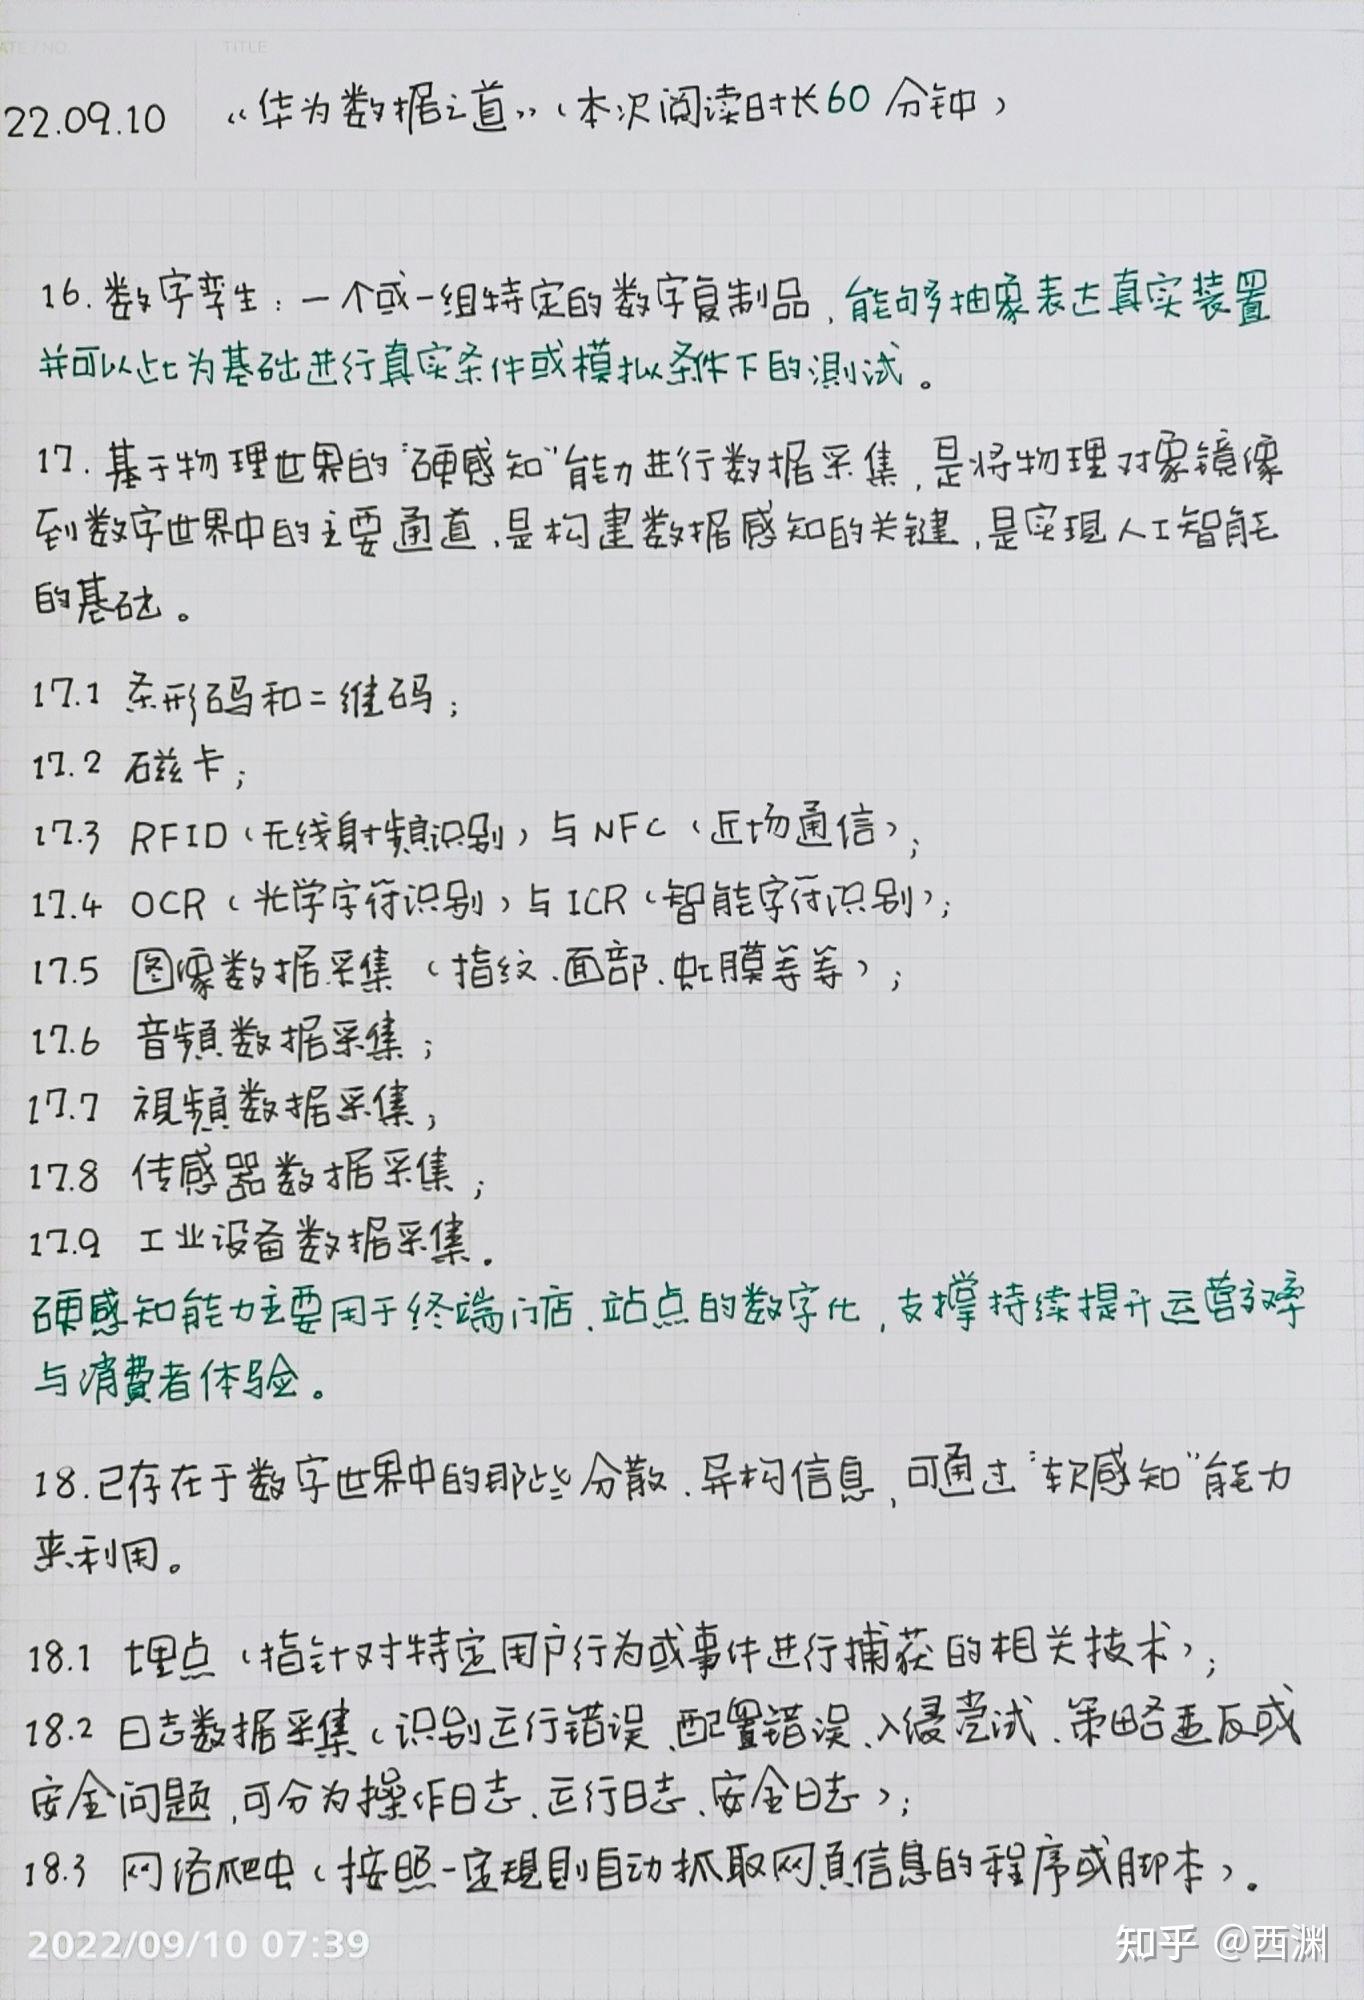 DATE / NO.
TITLE
22.09.10 《华为数据之道》（本次阅读时长60分钟）
16. 数字孪生：一个或一组特定的数字复制品，能够抽象表达真实装置
并可以此为基础进行真实条件或模拟条件下的测试。
17. 基于物理世界的“硬感知”能力进行数据采集，是将物理对象镜像
到数字世界中的主要通道，是构建数据感知的关键，是实现人工智能
的基础。
17.1 条形码和二维码；
17.2 磁卡；
17.3 RFID（无线射频识别）与NFC（近场通信）；
17.4 OCR（光学字符识别）与ICR（智能字符识别）；
17.5 图像数据采集（指纹、面部、虹膜等等）；
17.6 音频数据采集；
17.7 视频数据采集；
17.8 传感器数据采集；
17.9 工业设备数据采集.
硬感知能力主要用于终端门店、站点的数字化，支撑持续提升运营效率
与消费者体验。
18. 已存在于数字世界中的那些分散、异构信息，可通过“软感知”能力
来利用。
18.1 埋点（指针对特定用户行为或事件进行捕获的相关技术）；
18.2 日志数据采集（识别运行错误、配置错误、入侵尝试、策略违反或
安全问题，可分为操作日志、运行日志、安全日志）；
18.3 网络爬虫（按照一定规则自动抓取网页信息的程序或脚本）.
2022/09/10 07:39
知乎 @西渊